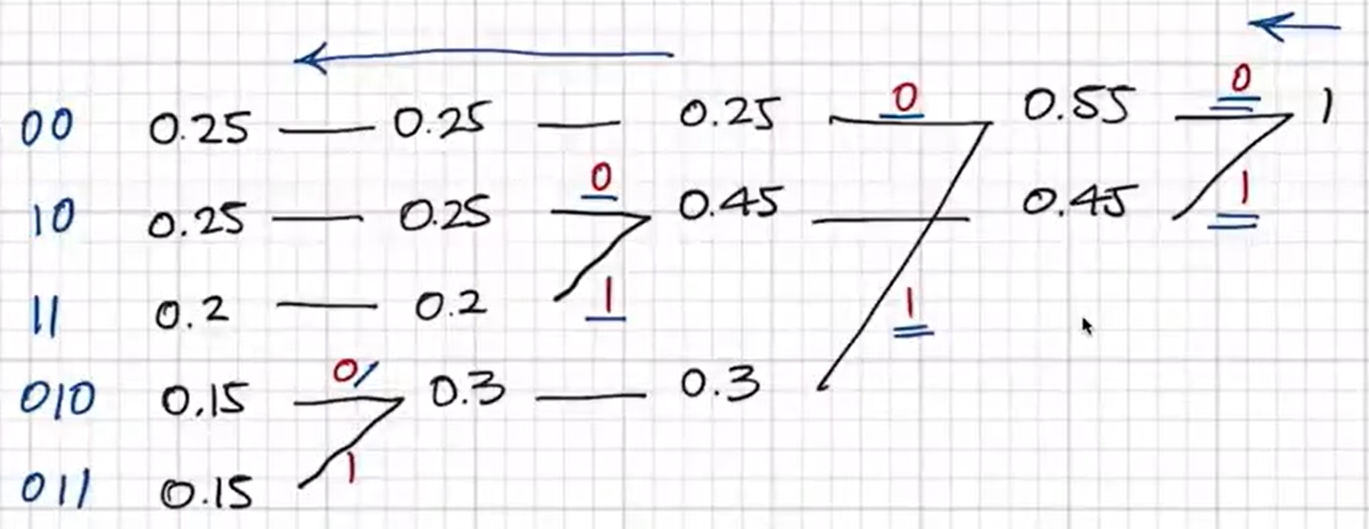 0
00 0.25 0.25 0.25 0 0.55 1
0
10 0.25 0.25 0.45 0.45 1
11 0.2 0.2 1 1
0
010 0.15 0.3 0.3
1
011 0.15